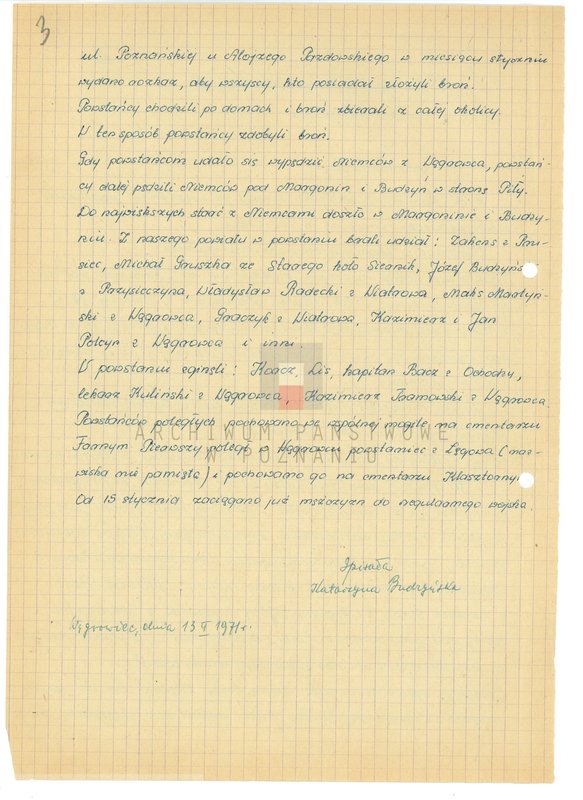 3
ul. Poznańskiej u Alojzego Pazdowskiego w miesiącu styczniu
wydano rozkaz, aby wszyscy, kto posiadał złożyli broń.
Powstańcy chodzili po domach i broń zbierali z całej okolicy.
W ten sposób powstańcy zdobyli broń.
Gdy powstańcom udało się wypędzić Niemców z Wągrowca, powstań-
cy dalej pędzili Niemców pod Margonin i Budzyń w stronę Piły.
Do największych starć z Niemcami doszło w Margoninie i Budzy-
niu. Z naszego powiatu w powstaniu brali udział: Zakens z Pru-
siec, Michał Gruszka ze Starego koło Siernik, Józef Budzyńs
z Przysieczyna, Władysław Radecki z Wiatrowa, Maks Martyń-
ski z Wągrowca, Graczyk z Wiatrowa, Kazimierz i Jan
Potcyn z Wągrowca i inni.
W powstaniu zginęli: Koacz, Lis, kapitan Bacz z Ochodzy,
lekarz Kuliński z Wągrowca, Kazimierz Tramowski z Wągrowca
Powstańców poległych pochowano we wspólnej mogile na cmentarzu
Farnym Pierwszy poległ w Wągrowcu powstaniec z Łęgowa (naz-
wiska nie pamiętę) i pochowano go na cmentarzu Klasztorny
Od 15 stycznia zaciągano już mężczyzn do regularnego wojska.
ARCHIWUM PAŃSTWOWE
W POZNANIU
Spisała
Katarzyna Budzyńska
Wągrowiec, dnia 13 V 1971 r.